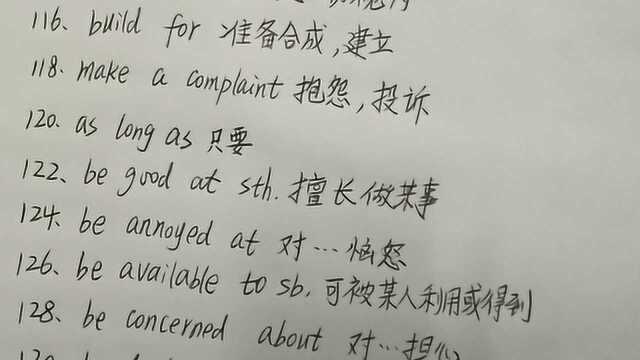 116、build for 准备合成,建立
118. make a complaint 抱怨,投诉
120. as long as 只要
122、be good at sth. 擅长做某事
124. be annoyed at 对…恼怒
126、be available to sb. 可被某人利用或得到
128、be concerned about 对…担心